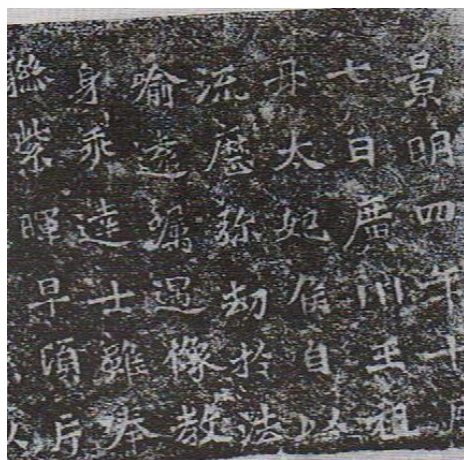 景明四年十月
七日廣川王祖
母太妃侯自以
流歷弥劫於法
喻遠囑遇像教
身乖達士雖奉
聯紫暉早頃片